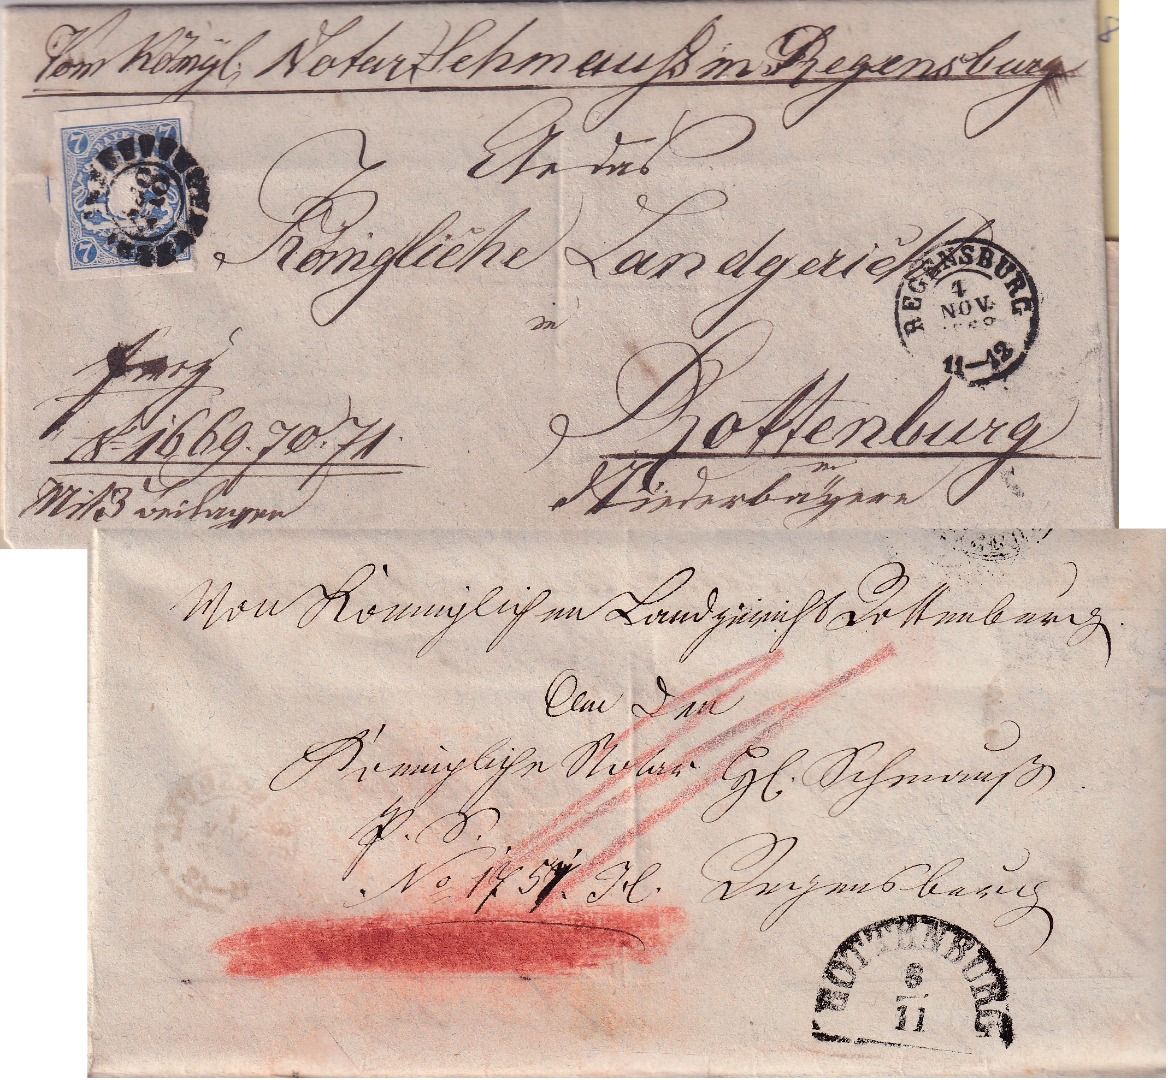 Vom Königl. Notar Schmauß in Regensburg
7 7
7
An das
Königliche Landgericht
in
Rottenburg
in
Niederbayern
N. 1669.70.71.
Mit 3 Beilagen
REGENSBURG
NOV.
11-12
Von Königlichen Landgericht Rottenburg
An den
Königliche Notar H. Schmauß
P. S.
No 1757. Regensburg
ROTTENBURG
6
11